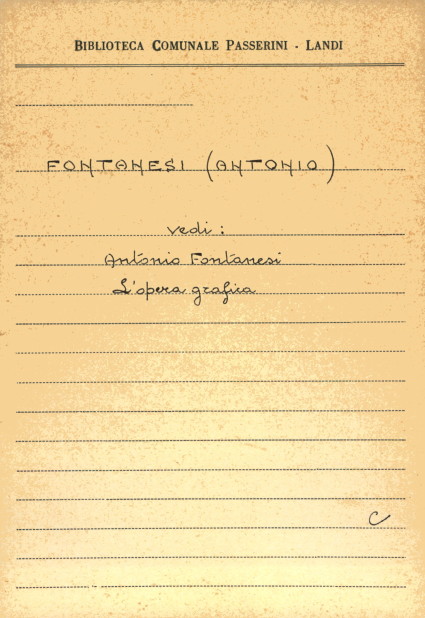 BIBLIOTECA COMUNALE PASSERINI - LANDI
FONTANESI (ANTONIO)
vedi :
Antonio Fontanesi
L'opera grafica
C